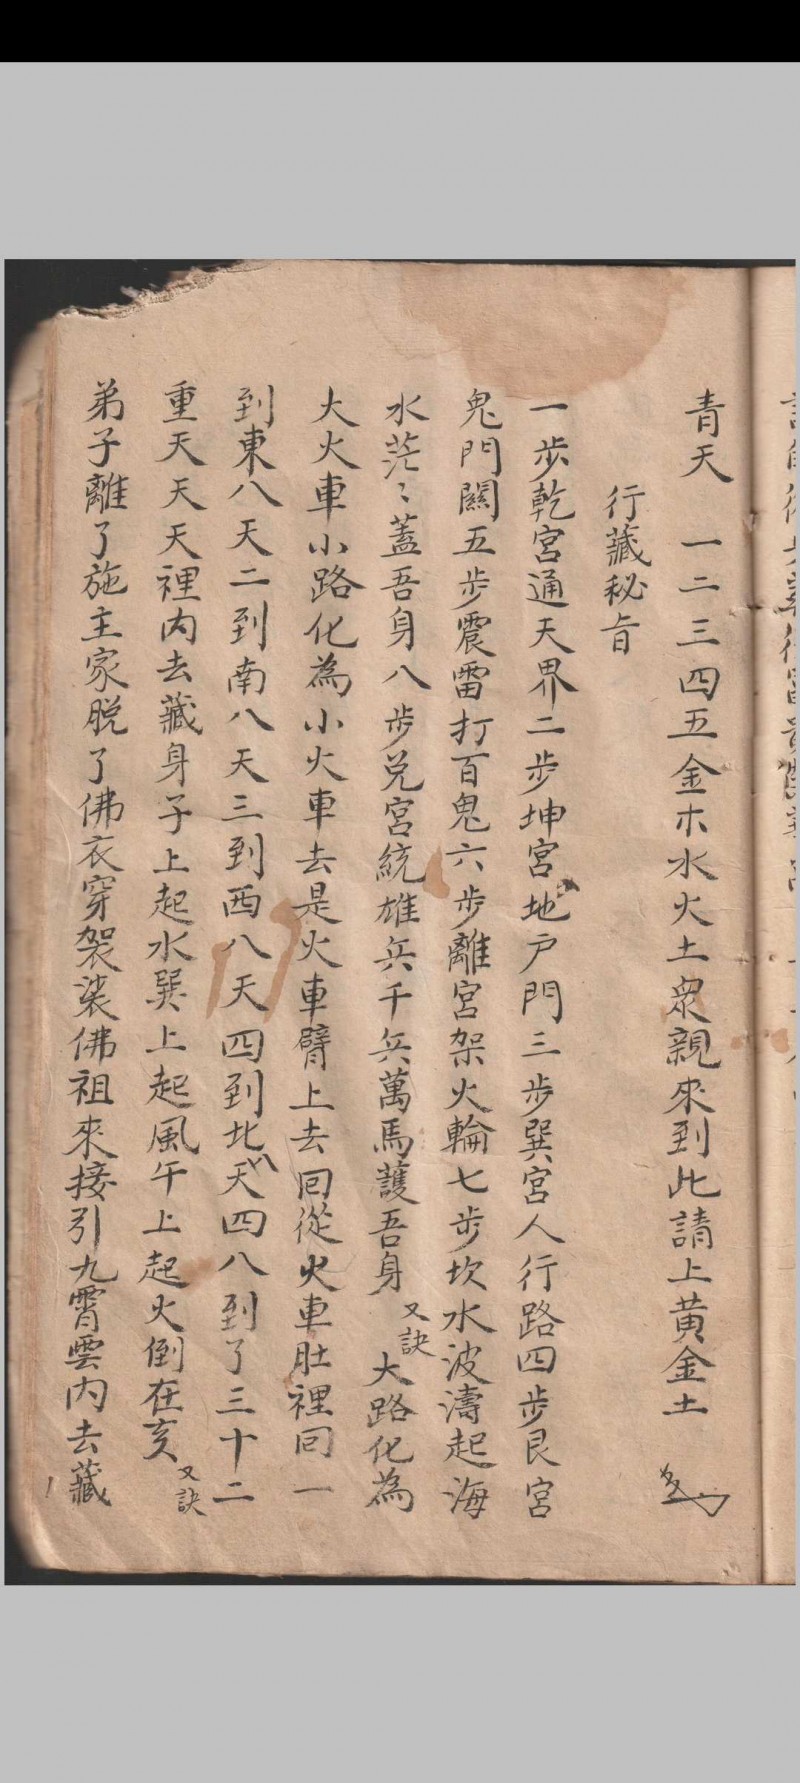 青天　一二三四五金木水火土衆親來到此請上黃金土
行藏秘旨
一步乾宮通天界二步坤宮地户門三步巽宮人行路四步艮宮
鬼門關五步震雷打百鬼六步離宮架火輪七步坎水波濤起海
水茫〻蓋吾身八步兑宮統雄兵千兵萬馬護吾身　又訣　大路化為
大火車小路化為小火車去是火車臂上去囘從火車肚裡囘一
到東八天二到南八天三到西八天四到北八天四八到了三十二
重天天天裡内去藏身子上起水巽上起風午上起火倒在亥　又訣
弟子離了施主家脱了佛衣穿袈裟佛祖來接引九霄雲内去藏